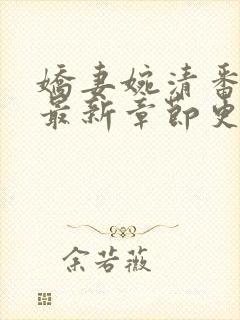 娇妻婉清番
最新章节更
余若薇